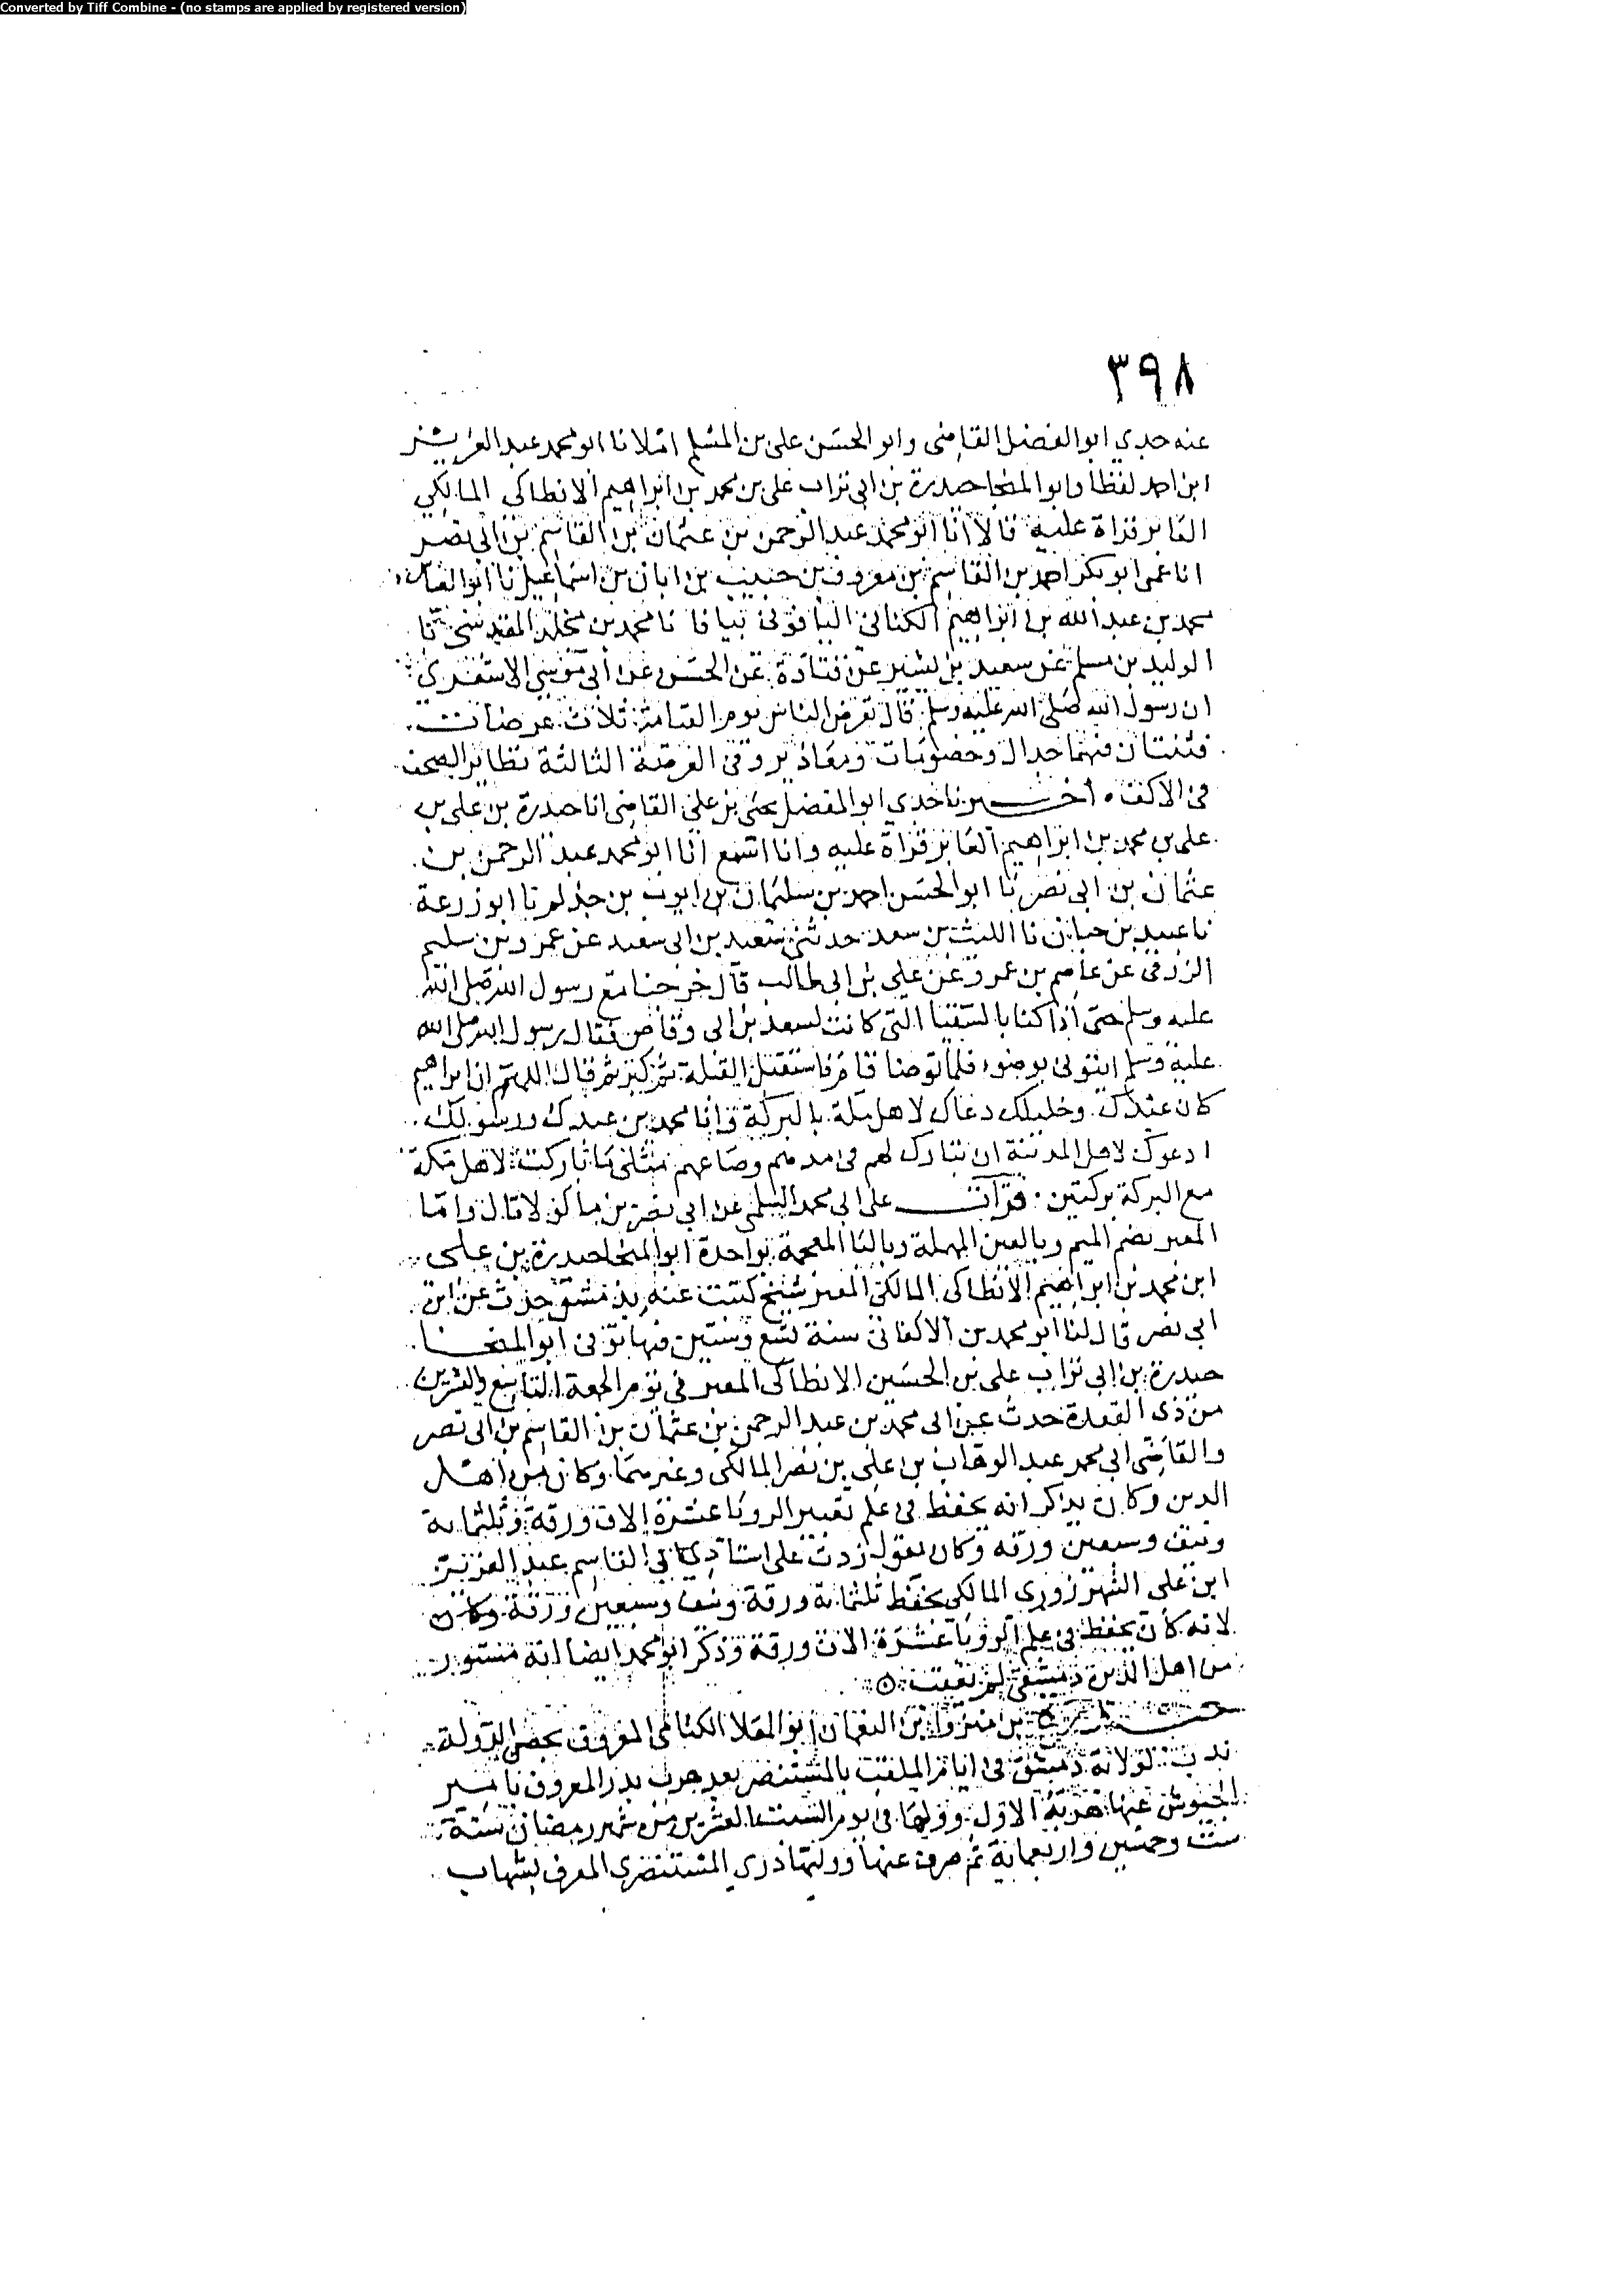 Converted by Tiff Combine - (no stamps are applied by registered version)
٣٩٨
عنه جدي ابو الفضل القاضى وابو الحسن على بن المسلم املانا ابو محمد عبد العزيز
ابن احمد لفظا وابو المنجا حيدرة بن ابى تراب على بن محمد بن ابراهيم الانطاكى المالكي
العابر قراة عليه قالا انا ابو محمد عبد الرحمن بن عثمان بن القاسم بن ابى نصر
انا عمى ابو بكر احمد بن القاسم بن معروف بن حبيب بن ابان بن اسماعيل نا ابو العباس
محمد بن عبد الله بن ابراهيم الكنانى اليافونى بيافا نا محمد بن مخلد المقدسى نا
الوليد بن مسلم عن سعيد بن بشير عن قتادة عن الحسن عن ابى موسى الاشعرى
ان رسول الله صلى الله عليه وسلم قال تعرض الناس يوم القيامة ثلاث عرضات
فثنتان فيهما جدال وخصومات ومعاذير وفى العرضة الثالثة تطاير الصحف
فى الاكف اخبرنا جدي ابو المفضل يحيى بن على القاضى انا حيدرة بن على بن
على بن محمد بن ابراهيم العابر قراة عليه وانا اسمع انا ابو محمد عبد الرحمن بن
عثمان بن ابى نصر نا ابو الحسن احمد بن سليمان بن ايوب بن حذلم نا ابو زرعة
نا عبيد بن حبان نا الليث بن سعد حدثنى سعيد بن ابى سعيد عن عمرو بن سليم
الزرقى عن عاصم بن عمرو عن على بن ابى طالب قال خرجنا مع رسول الله صلى الله
عليه وسلم حتى اذا كنا بالسقيا التى كانت لسعد بن ابى وقاص فقال رسول الله صلى الله
عليه وسلم ايتونى بوضوء فلما توضا قام فاستقبل القبلة ثم كبر ثم قال اللهم ان ابراهيم
كان عبدك وخليلك دعاك لاهل مكة بالبركة وانا محمد بن عبدك ورسولك
ادعوك لاهل المدينة ان تبارك لهم فى مدهم وصاعهم مثلى ما باركت لاهل مكة
مع البركة بركتين قرات على ابى محمد السلمى عن ابى نصر بن ماكولا قال واما
المعبر بضم الميم وبالعين المهملة وبالبا المعجمة بواحدة ابو المنجا حيدرة بن على
ابن محمد بن ابراهيم الانطاكى المالكى المعبر شيخ كتبت عنه بدمشق حدث عن ابن
ابى نصر قال لنا ابو محمد بن الاكفانى سنة تسع وستين فيها توفى ابو المنجا
حيدرة بن ابى تراب على بن الحسين الانطاكى المعبر فى يوم الجمعة التاسع والعشرين
من ذى القعدة حدث عن ابى محمد بن عبد الرحمن بن عثمان بن القاسم بن ابى نصر
والقاضى ابى محمد عبد الوهاب بن على بن نصر المالكى وغيرهما وكان من اهل
الدين وكان يذكر انه يحفظ فى علم تعبير الرويا عشرة الاف ورقة وثلثماية
ونيف وسبعين ورقة وكان يقول زدت على استاذي ابى القاسم عبد العزيز
ابن على الشهرزورى المالكى بحفظ ثلثماية ورقة ونيفا وسبعين ورقة وكان
لانه كان يحفظ فى علم الرويا عشرة الاف ورقة وذكر ابو محمد ايضا انه مستور
من اهل الدين دمشقى لم يعقب
حيدرة بن منزوا بن النعمان ابو المعلا الكتامى المعروف بحصن الدولة
ندب لولاية دمشق فى ايام الملقب بالمستنصر بعد حرب بدر المعروف بامير
الجيوش عنها هربه الاول ووليها فى يوم السبت العشرين من شهر رمضان سنة
ست وخمسين واربعماية ثم صرف عنها ووليها دري المستنصرى المعرف بشهاب